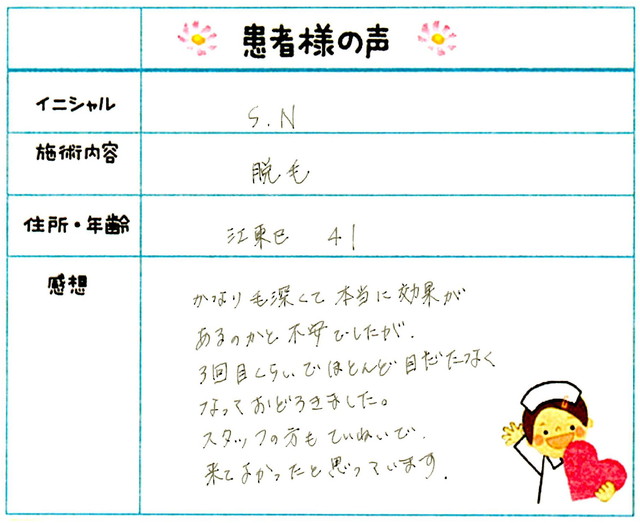 患者様の声
イニシャル
S.N
施術内容
脱毛
住所・年齢
江東区 41
感想
かなり毛深くて本当に効果が
あるのかと不安でしたが、
3回目くらいでほとんど目だたなく
なっておどろきました。
スタッフの方もていねいで、
来てよかったと思っています。